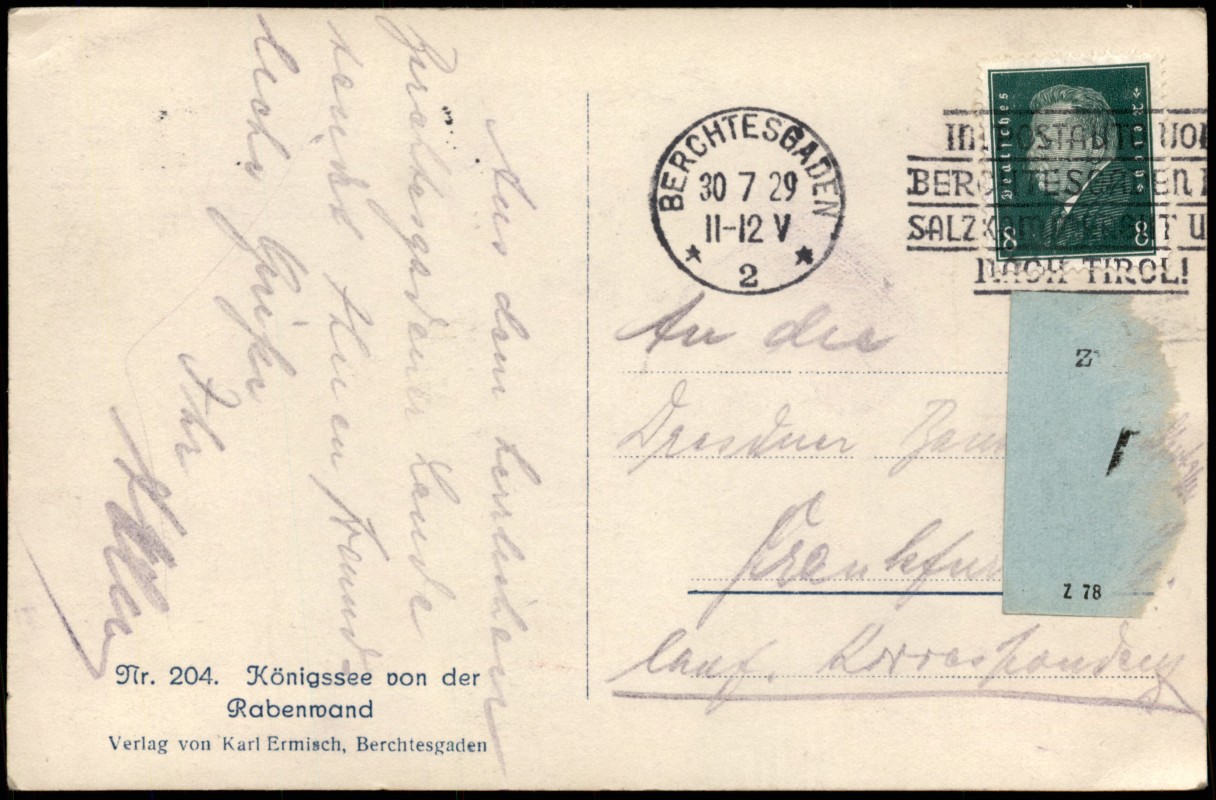 Aus dem herrlichen
Berchtesgadener Lande
sendet Ihnen
Grüße
Ihr
Nr. 204. Königssee von der
Rabenwand
Verlag von Karl Ermisch, Berchtesgaden
BERCHTESGADEN
30 7 29
11-12 V
* 2 *
IM POSTAUTO VON
BERCHTESGADEN I
SALZKAMMERGUT U
NACH TIROL!
Deutsches Reich
8 8
An die
Dresdner Ban
Frankfur
lauf. Korrespondenz
Z
Z 78